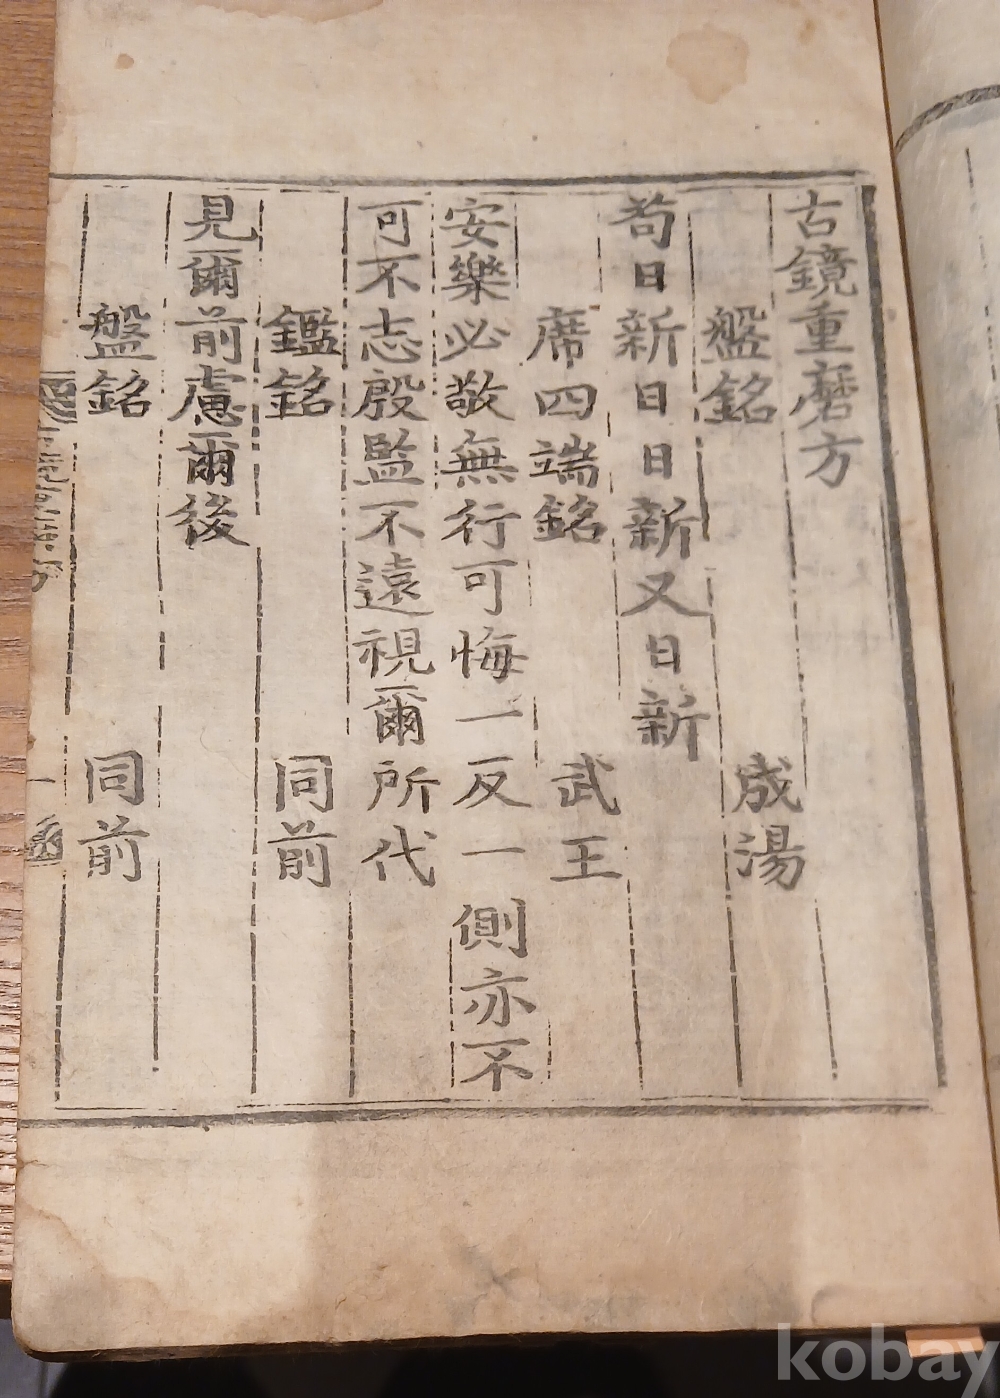 古鏡重磨方
盤銘 成湯
苟日新日日新又日新
席四端銘 武王
安樂必敬無行可悔一反一側亦不
可不志殷監不遠視爾所代
鑑銘 同前
見爾前慮爾後
盤銘 同前
kobay